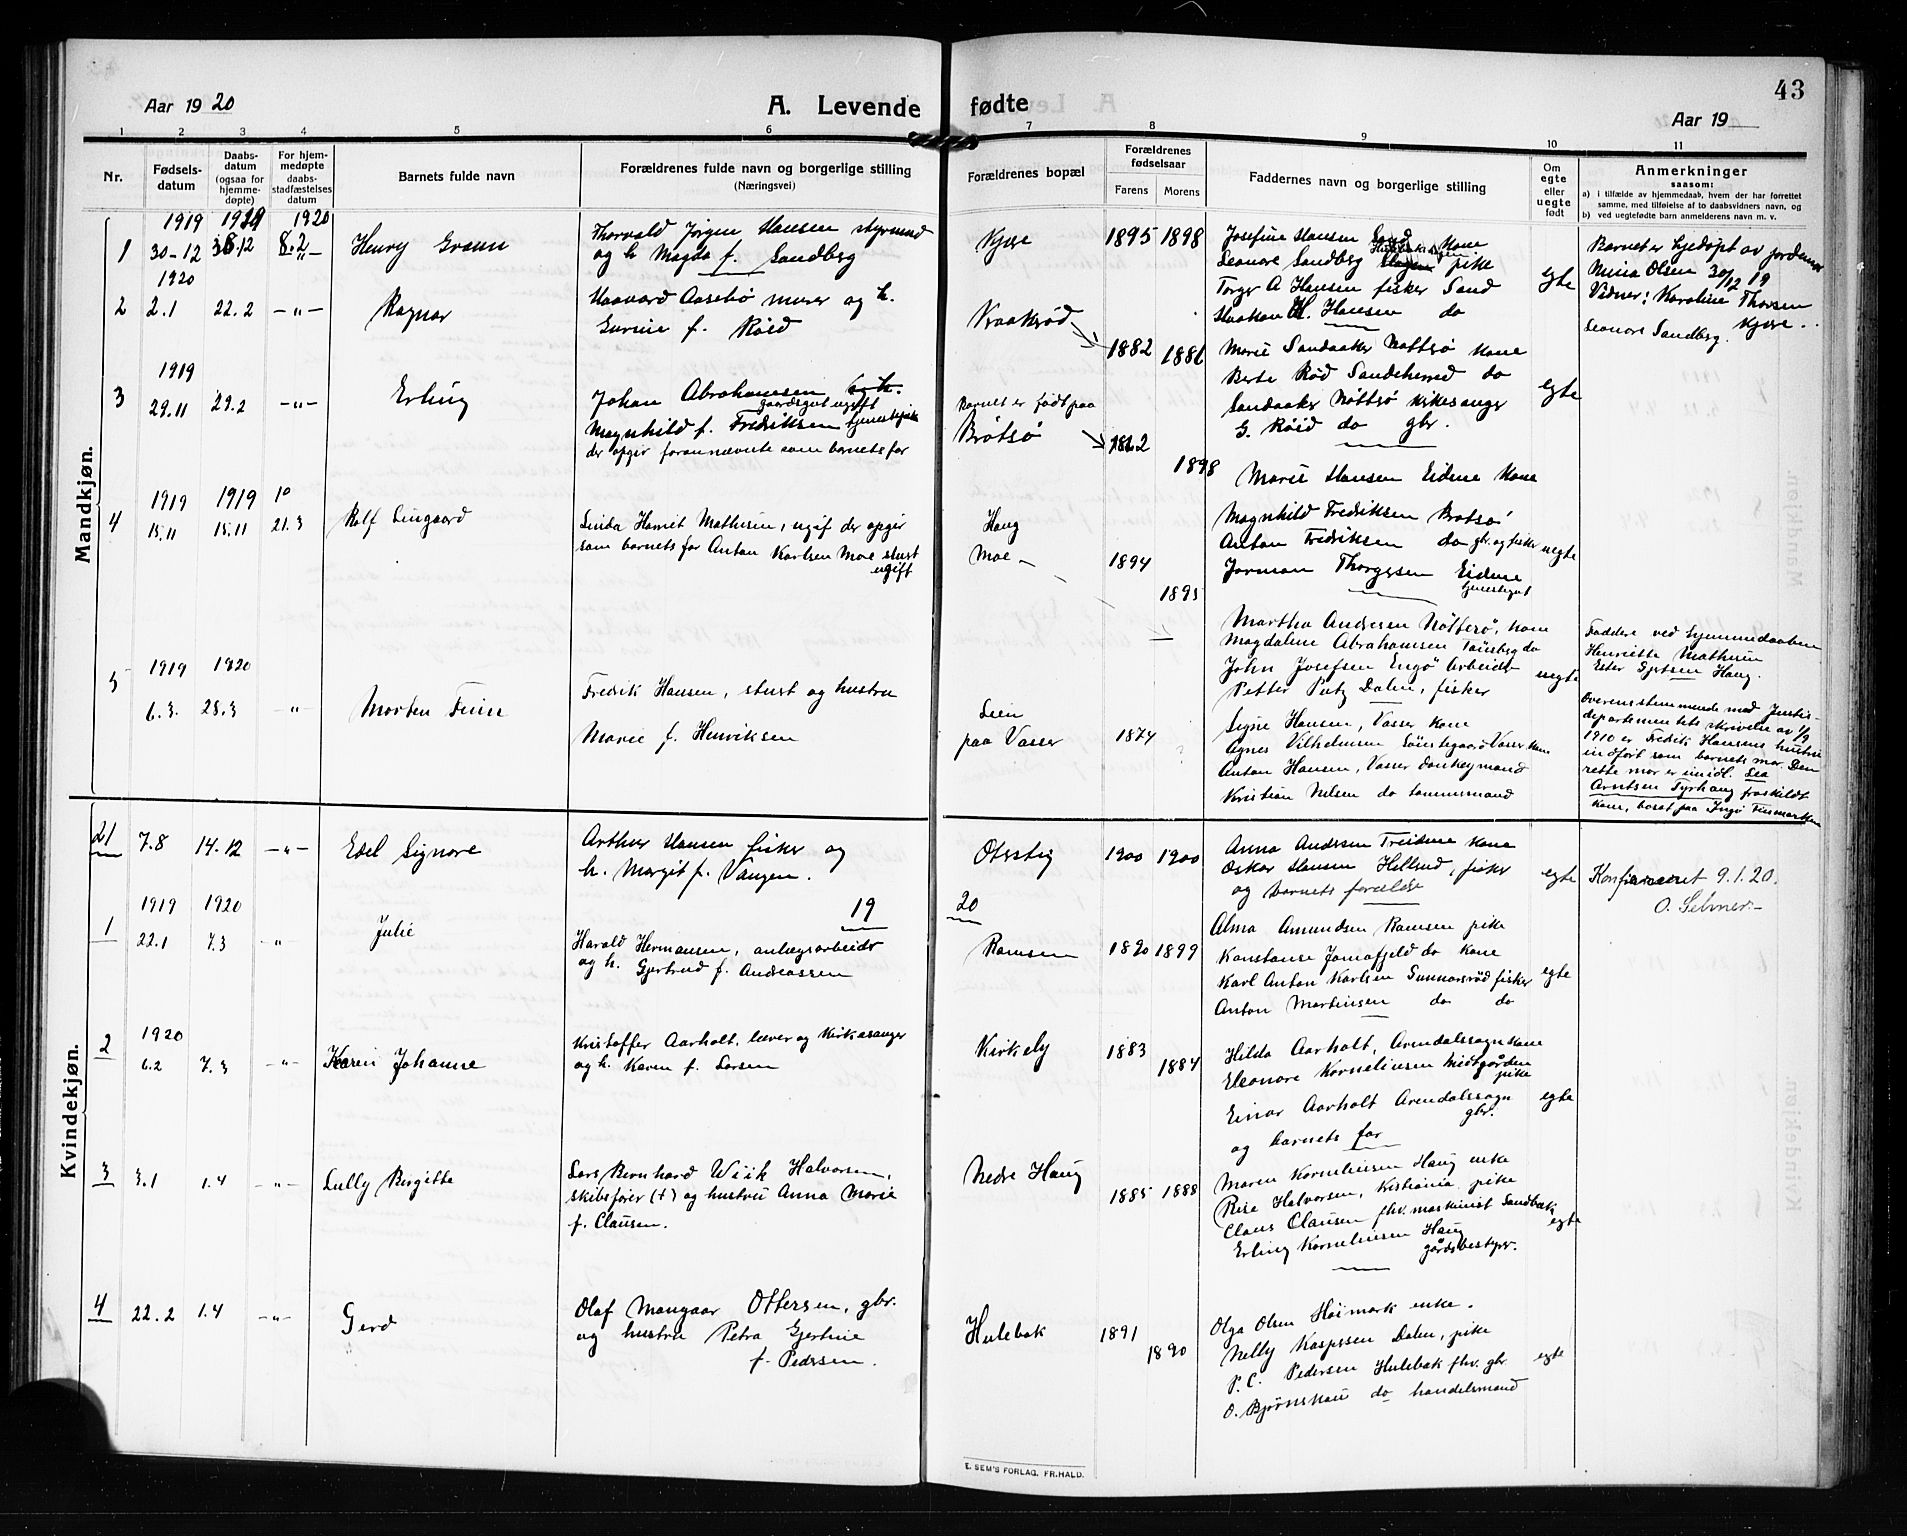 Aar 1920
A. Levende fødte
Aar 19
43
1 2 3 4 5 6 7 8 9 10 11
Nr.
Fødsels-
datum
Daabs-
datum
(ogsaa for
hjemme-
døpte)
For hjem-
medøpte
daabs-
stadfæstelses
datum
Barnets fulde navn
Forældrenes fulde navn og borgerlige stilling
(Næringsvei)
Forældrenes bopæl
Forældrenes
fødselsaar
Farens Morens
Faddernes navn og borgerlige stilling
Om
egte
eller
uegte
født
Anmerkninger
saasom:
a) i tilfælde av hjemmedaab, hvem der har forrettet
samme, med tilføielse af to daabsvidners navn, og
b) ved uegtefødte barn anmelderens navn m. v.
Mandkjøn.
1919 1920
1 30-12 8.2 Henry
Thorvald Jørgen Hansen styrmand
og h Magda f. Sandberg
Kjøre
1895 1898
Josefine Hansen Sand kone
Leonore Sandberg pike
Torger A Hansen fisker Sand
Haakon H. Hansen do
egte
Barnet er hjedøpt av jordemor
Mina Olsen 30/12 19
Vidner: Karoline Thorsen
Kjøre.
Leonore Sandberg.
1920
2 2.1 22.2 -"- Ragnar
Haavard Aasebø murer og h.
Gurine f. Røid
Vraakrød
1882 1886
Marie Sandaaker Nøtterø kone
Berte Rød Sandeherred do
Sandaaker Nøtterø kirkesanger
G. Røid do gbr.
egte
1919
3 29.11 29.2 -"- Erling
Johan Abrahamsen og h.
gaardsgut ugift
Magnhild f. Fredriksen tjenestepike
der opgir forannævnte som barnets far
Barnet er født paa
Brøtsø
1898
Marie Hansen Eidene kone
Magnhild Fredriksen Brøtsø
Anton Fredriksen do gbr. og fisker
Jorman Thorgersen Eidene
tjenestegut
uegte
1919 1919
4 15.11 15.11 21.3 Rolf Lingaard
Linda Harriet Mathisen, ugif der opgir
som barnets far Anton Karlsen Moe stuert
ugift
Haug
Moe -
1894
1895
Martha Andersen Nøtterø, kone
Magdalene Abrahamsen Tønsberg do
John Josefsen Engø Arbeider
Petter Putz Dalen, fisker
uegte
Faddere ved hjemmedaaben
Henriette Mathisen
Ester Gjertsen Haug.
1919 1920
5 6.3. 28.3 -"- Morten
Fredrik Hansen, stuert og hustru
Marie f. Henriksen
Lien
paa Vasser
1874
?
Signe Hansen, Vasser kone
Agnes Vilhelmsen Vasser kone
Anton Hansen, Vasser donkeymand
Kristian Nilsen do tømmermand
Overensstemmende med Justis-
departementets skrivelse av 1/9
1910 er Fredrik Hansens hustru
indført som barnets mor. Den
rette mor er imidl. Lea
Arntsen Tyrhaug fraskildt
kone, bosat paa Ingø Finmarken
Kvindekjøn.
21 7.8 14.12 -"- Edel Signore
Arthur Hansen fisker og
h. Margit f. Vangen.
Oterstig
1900 1900
Anna Andersen Treidene kone
Oskar Hansen Hellerud, fisker
og barnets forældre
egte
Konfereret 9.1.20.
O. Selmer.
19 20
1919 1920
1 22.1 7.3 -"- Julie
Harald Hermansen, anlægsarbeider
og h. Gjertrud f. Andreassen
Ramsen
1890 1899
Alma Amundsen Ramsen pike
Konstanse Jamafjeld do kone
Karl Anton Karlsen Gunnarsrød fisker
Anton Martinsen do do
egte
1920
2 6.2 7.3 -"- Karen Johanne
Kristoffer Aarholt, lærer og Kirkesanger
og h. Karen f. Larsen
Kirkely
1883
1884
Hilda Aarholt, Arendalssogn kone
Eleonore Kornelius­sen Midtgården
pike
Einar Aarholt Arendalssogn
gbr.
og barnets far
egte
3 3.1 1.4 -"- Lully Birgitte
Lars Bernhard Wiik Halvorsen,
skibsfører (+) og hustru Anna Marie
f. Clausen.
Nedre Haug
1885 1888
Maren Korneliussen Haug enke
Halvorsen, Kristiania pike
Claus Clausen fhv. maskinist Sandbak
Erling Korneliussen Haug
gårdsbestyrer.
egte
4 22.2 1.4 -"- Gerd
Olaf Mangaar Ottersen, gbr.
og hustru Petra Gjertine
f. Pedersen.
Hulebak
1891
1890
Olga Olsen Høimark enke.
Nelly Kaspersen Dalen, pike
P. C. Pedersen Hulebak fhv. gbr
O. Bjørnskau do handelsmand
egte
E. SEM'S FORLAG, FR.HALD.